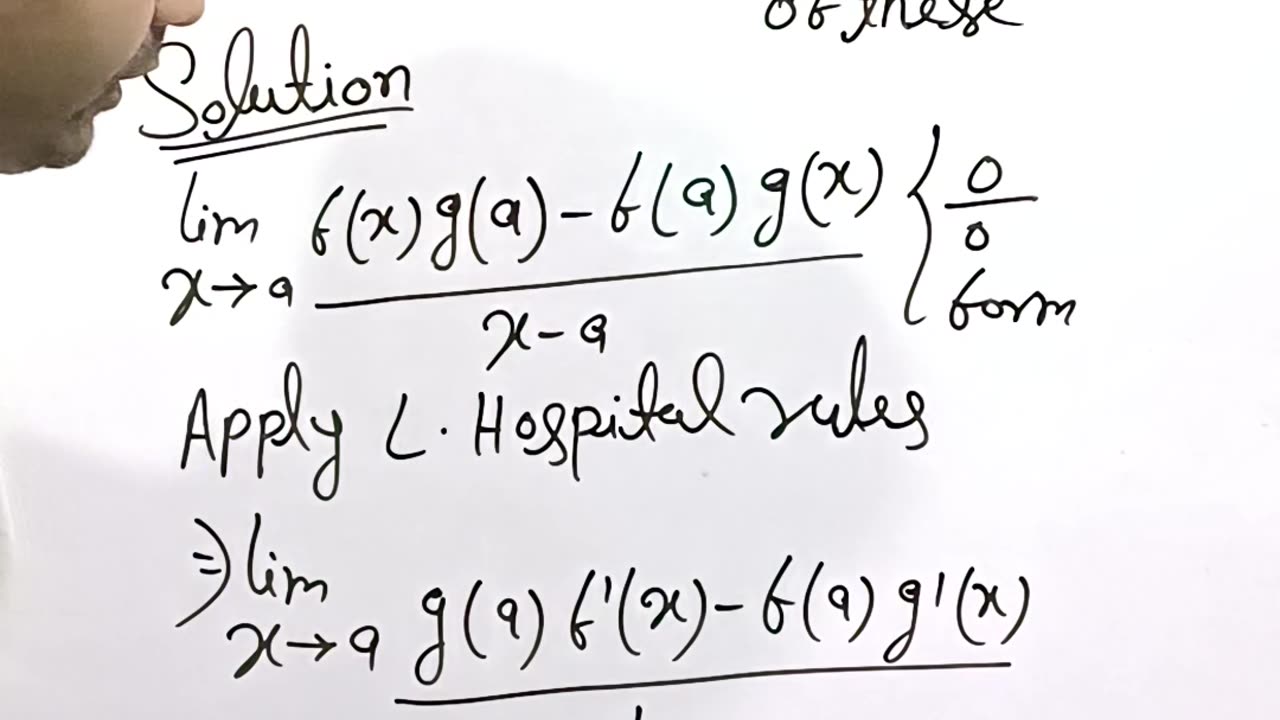 of these
Solution
lim f(x)g(a) - f(a) g(x) { 0
x→a x-a 0
form
Apply L. Hospital rules
⇒ lim g(a) f'(x) - f(a) g'(x)
x→a